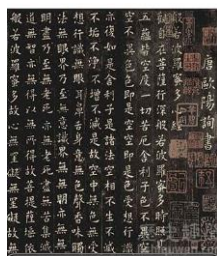 唐歐陽詢書
般若波羅蜜多心經
觀自在菩薩行深般若波羅蜜多時照見
五蘊皆空度一切苦厄舍利子色不異空
空不異色色即是空空即是色受想行識
亦復如是舍利子是諸法空相不生不滅
不垢不淨不增不減是故空中無色無受
想行識無眼耳鼻舌身意無色聲香味觸
法無眼界乃至無意識界無無明亦無無
明盡乃至無老死亦無老死盡無苦集滅
道無智亦無得以無所得故菩提薩埵依
般若波羅蜜多故心無罣礙無罣礙故無